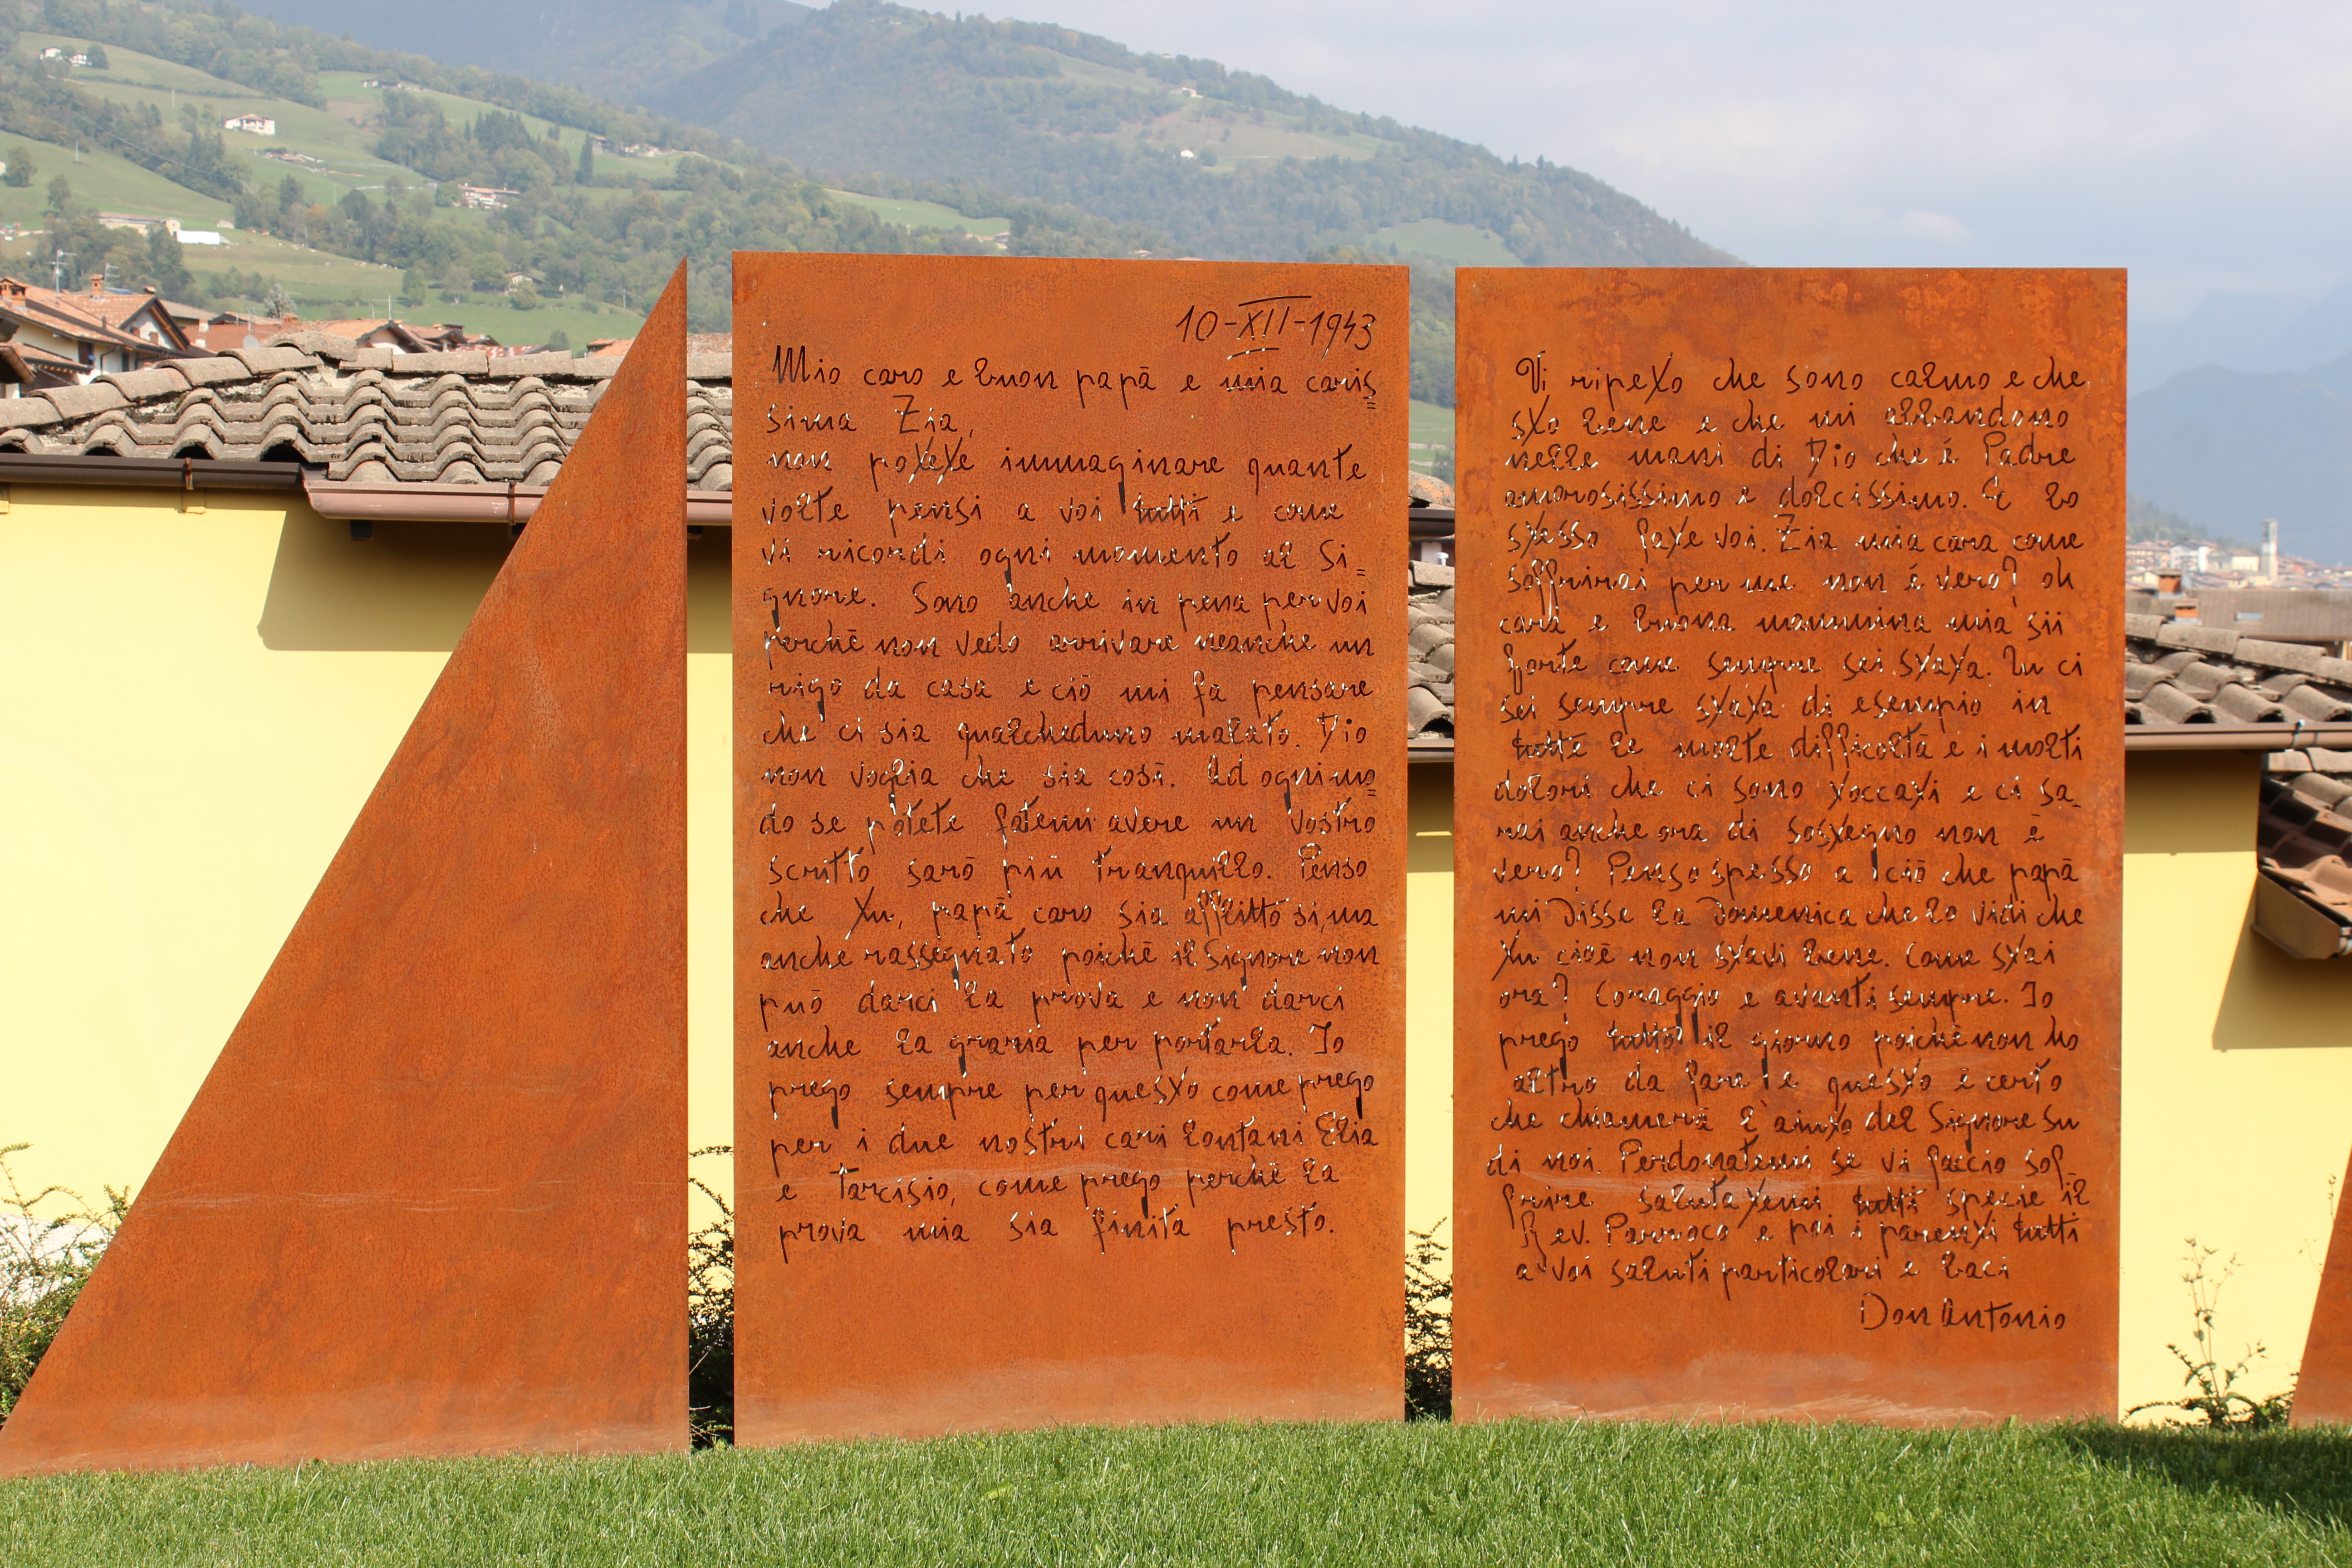 10-XII-1943
Mio caro e buon papā e mia caris=
sima Zia,
non potete immaginare quante
volte pensi a voi tutti e come
vi ricordi ogni momento al Si=
gnore. Sono anche in pena per voi
perchē non vedo arrivare neanche un
rigo da casa e ciō mi fa pensare
che ci sia qualcheduno malato. Dio
non voglia che sia cosī. Ad ogni mo=
do se potete fatemi avere un Vostro
scritto sarō piū tranquillo. Penso
che tu, papā caro sia afflitto sì, ma
anche rassegnato poichē il Signore non
puō darci la prova e non darci
anche la grazia per portarla. Io
prego sempre per questo come prego
per i due nostri cari lontani Elia
e Tarcisio, come prego perchē la
prova mia sia finita presto.
Vi ripeto che sono calmo e che
sto bene e che mi abbandono
nelle mani di Dio che é Padre
amorosissimo e dolcissimo. E lo
stesso fate voi. Zia mia cara come
soffrirai per me non é vero? oh
cara e buona mammina mia sii
forte come sempre sei stata. Tu ci
sei sempre stata di esempio in
tutte le molte difficoltā e i molti
dolori che ci sono toccati e ci sa_
rai anche ora di sostegno non ē
vero? Penso spesso a ciō che papā
mi Disse la Domenica che lo vidi che
tu cioē non stavi bene. Come stai
ora? Coraggio e avanti sempre. Io
prego tutto il giorno poichē non ho
altro da fare e questo ē certo
che chiamerā l'aiuto del Signore su
di noi. Perdonatemi se vi faccio sof_
frire salutatemi tutti specie il
Rev. Parroco e poi i parenti tutti
a voi saluti particolari e baci
Don Antonio